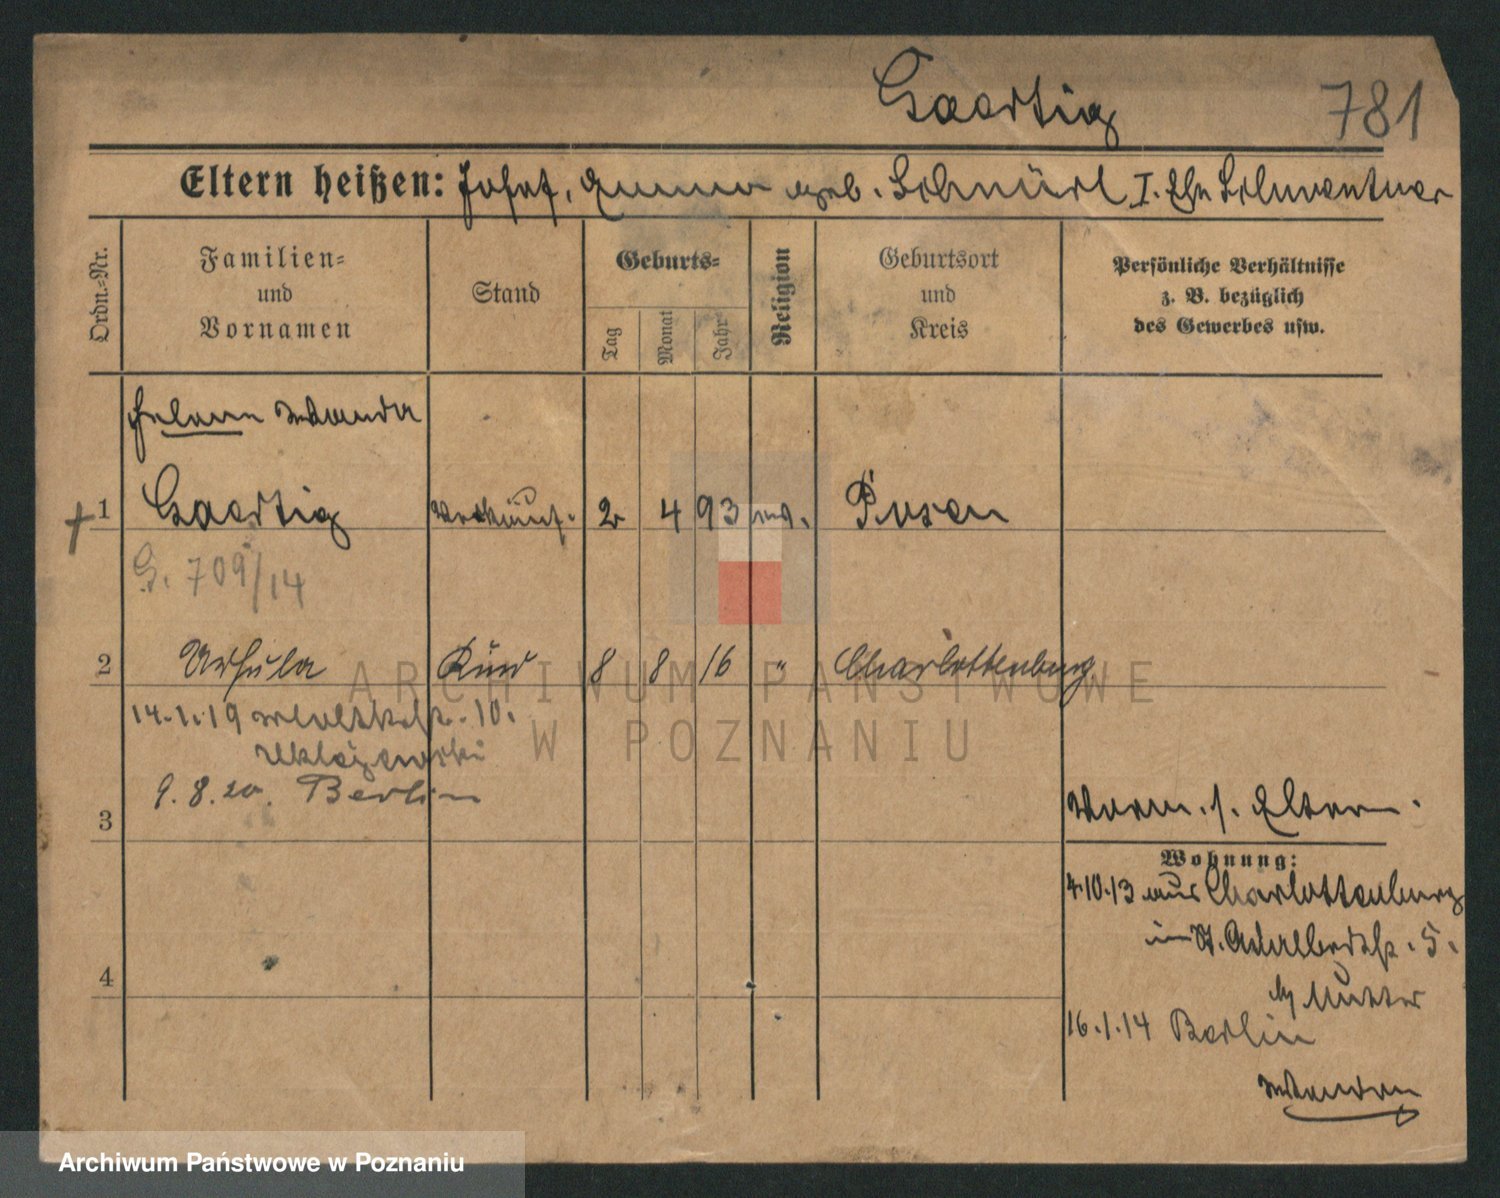 Gaertig 781
Eltern heißen: Josef, Emma geb. Schnürl I. Ehe
Ordn.-Nr.
Familien=
und
Vornamen
Stand
Geburts=
Tag
Monat
Jahr
Religion
Geburtsort
und
Kreis
Persönliche Verhältnisse
z. B. bezüglich
des Gewerbes usw.
Helene Wanda
1 Gaertig Verkäuf. 2 4 93 Posen
G. 709/14
2 Ursula Kind 8 8 16 " Charlottenburg
14.1.19 10.
9.8.20. Berlin
3
Vorm. s. Eltern.
Wohnung:
4.10.13 aus Charlottenburg
in St. Adalbertstr. 5.
4
by Mutter
16.1.14 Berlin
ARCHIWUM PAŃSTWOWE
W POZNANIU
Archiwum Państwowe w Poznaniu